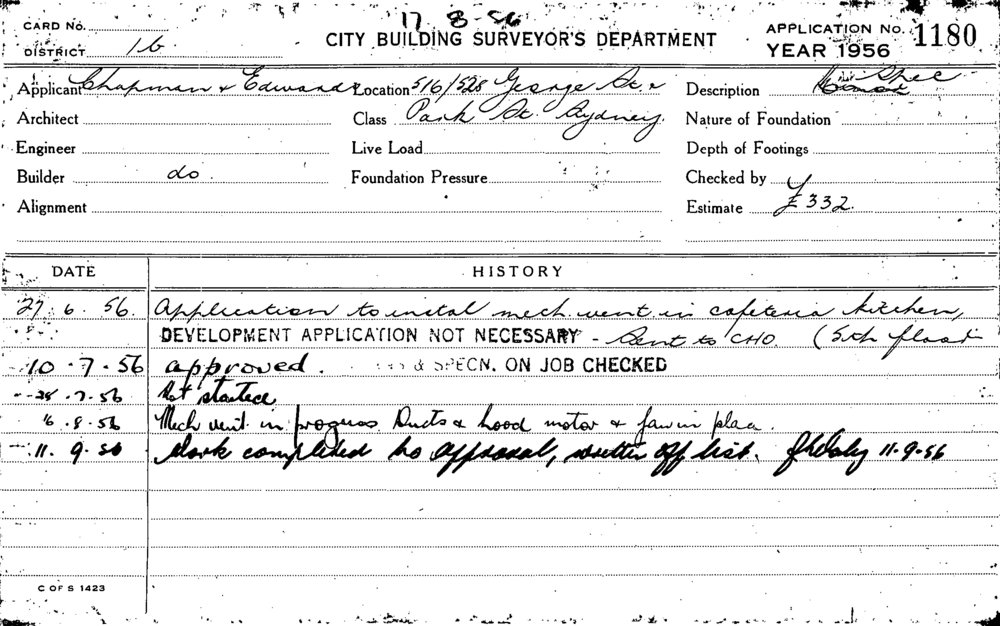 17 8 56
CARD No.
CITY BUILDING SURVEYOR'S DEPARTMENT
APPLICATION No. 1180
DISTRICT 16
YEAR 1956
Applicant Chapman & Edwards Location 516/528 George St. & Description Spec
Architect Class Park St. Sydney. Nature of Foundation
Engineer Live Load Depth of Footings
Builder do. Foundation Pressure Checked by
Alignment Estimate £332.
DATE HISTORY
27.6.56. Application to instal mech. vent. in cafeteria kitchen,
DEVELOPMENT APPLICATION NOT NECESSARY - Sent to CHO. (5th floor
10.7.56 approved. & SPECN. ON JOB CHECKED
28.7.56 Not started
16.8.56 Mech vent. in progress Ducts & hood motor & fan in place.
11.9.56 Work completed to approval, written off list. 11.9.56
C OF S 1423